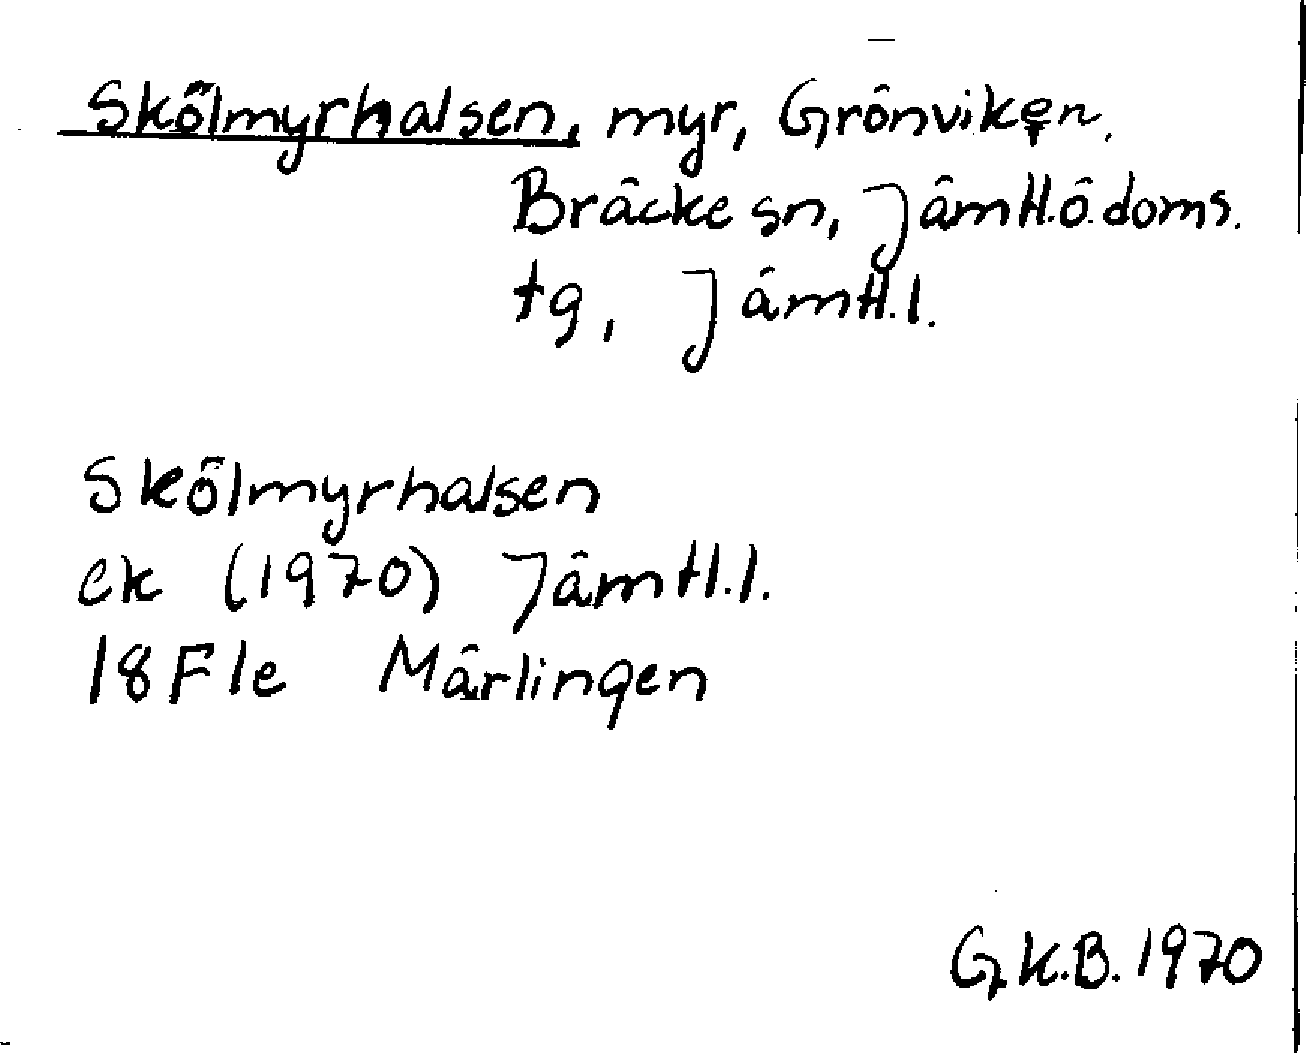 Skölmyrhalsen, myr, Grönviken.
Bräcke sn, Jämtl.ö.doms.
tg, Jämtl.l.
Skölmyrhalsen
ek (1970) Jämtl.l.
18F1e Märlingen
G.K.B. 1970